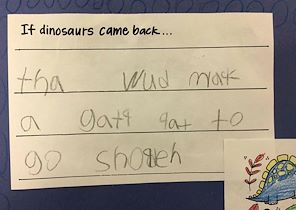 If dinosaurs came back...
tha wud mak
a gat9 9at to
go